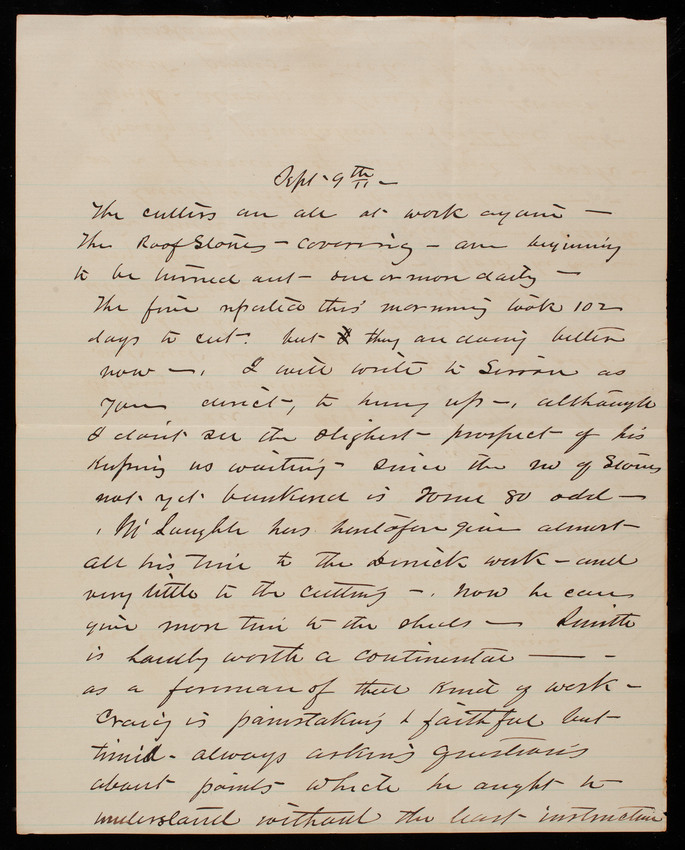 Sept. 9th —
The cutters are all at work again —
The Roof Stones — covering — are beginning
to be turned out — one or more daily —
The five reported this morning took 102
days to cut. but they are doing better
now —. I will write to Sisson as
you direct, to hurry up —, although
I don't see the slighest prospect of his
keeping us waiting — since the no of Stones
not yet bunkered is some 80 odd —
McLaughlin has heretofore given almost
all his time to the Derrick work — and
very little to the cutting —. Now he can
give more time to the sheds — Smith
is hardly worth a continental —— -
as a foreman of that kind of work —
Craig is painstaking & faithful but
timid — always asking questions
about points which he ought to
understand without the least instruction